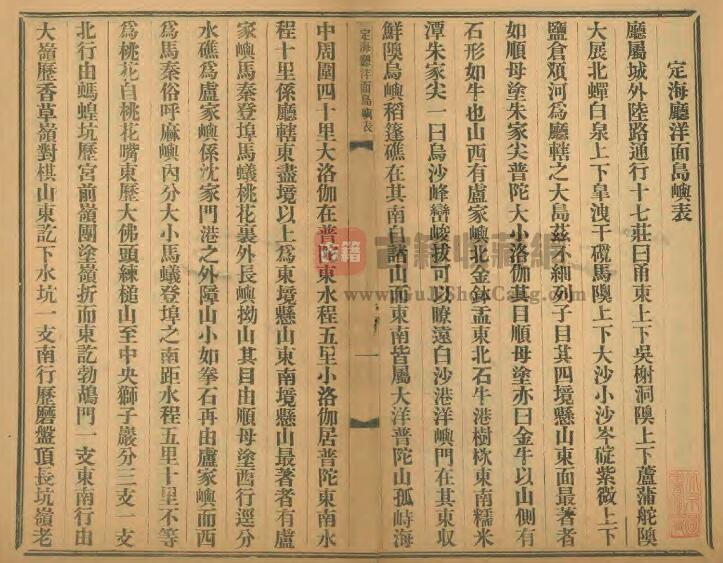 定海廳洋面島嶼表
廳屬城外陸路通行十七莊曰甬東上下吳榭洞隩上下蘆蒲舵隩
大展北蟬白泉上下皐洩干𥔲馬隩上下大沙小沙岑碇紫微上下
鹽倉頒河爲廳轄之大島茲不細列子目其四境懸山東面最著者
如順母塗朱家尖普陀大小洛伽其目順母塗亦曰金牛以山側有
石形如牛也山西有盧家嶼北金鉢盂東北石牛港樹栨東南糯米
潭朱家尖一曰烏沙峰巒峻拔可以瞭遠白沙港洋嶼門在其東収
鮮隩烏嶼稻篷礁在其南自諸山而東南皆屬大洋普陀山孤峙海
定海廳洋面島嶼表
一
中周圍四十里大洛伽在普陀東水程五里小洛伽居普陀東南水
程十里係廳轄東盡境以上爲東境懸山東南境懸山最著者有盧
家嶼馬秦登埠馬蟻桃花裏外長嶼拗山其目由順母塗酉行逕分
水礁爲盧家嶼係沈家門港之外障山小如拳石再由盧家嶼而西
爲馬秦俗呼麻嶼內分大小馬蟻登埠之南距水程五里十里不等
爲桃花自桃花嘴東歷大佛頭練槌山至中央獅子巖分三支一支
北行由螞蝗坑歷宮前嶺團塗嶺折而東訖勃鴣門一支東南行由
大嶺歷香草嶺對棋山東訖下水坑一支南行歷磨盤頂長坑嶺老
古籍
古籍收藏網
www.GuJiShouCang.com